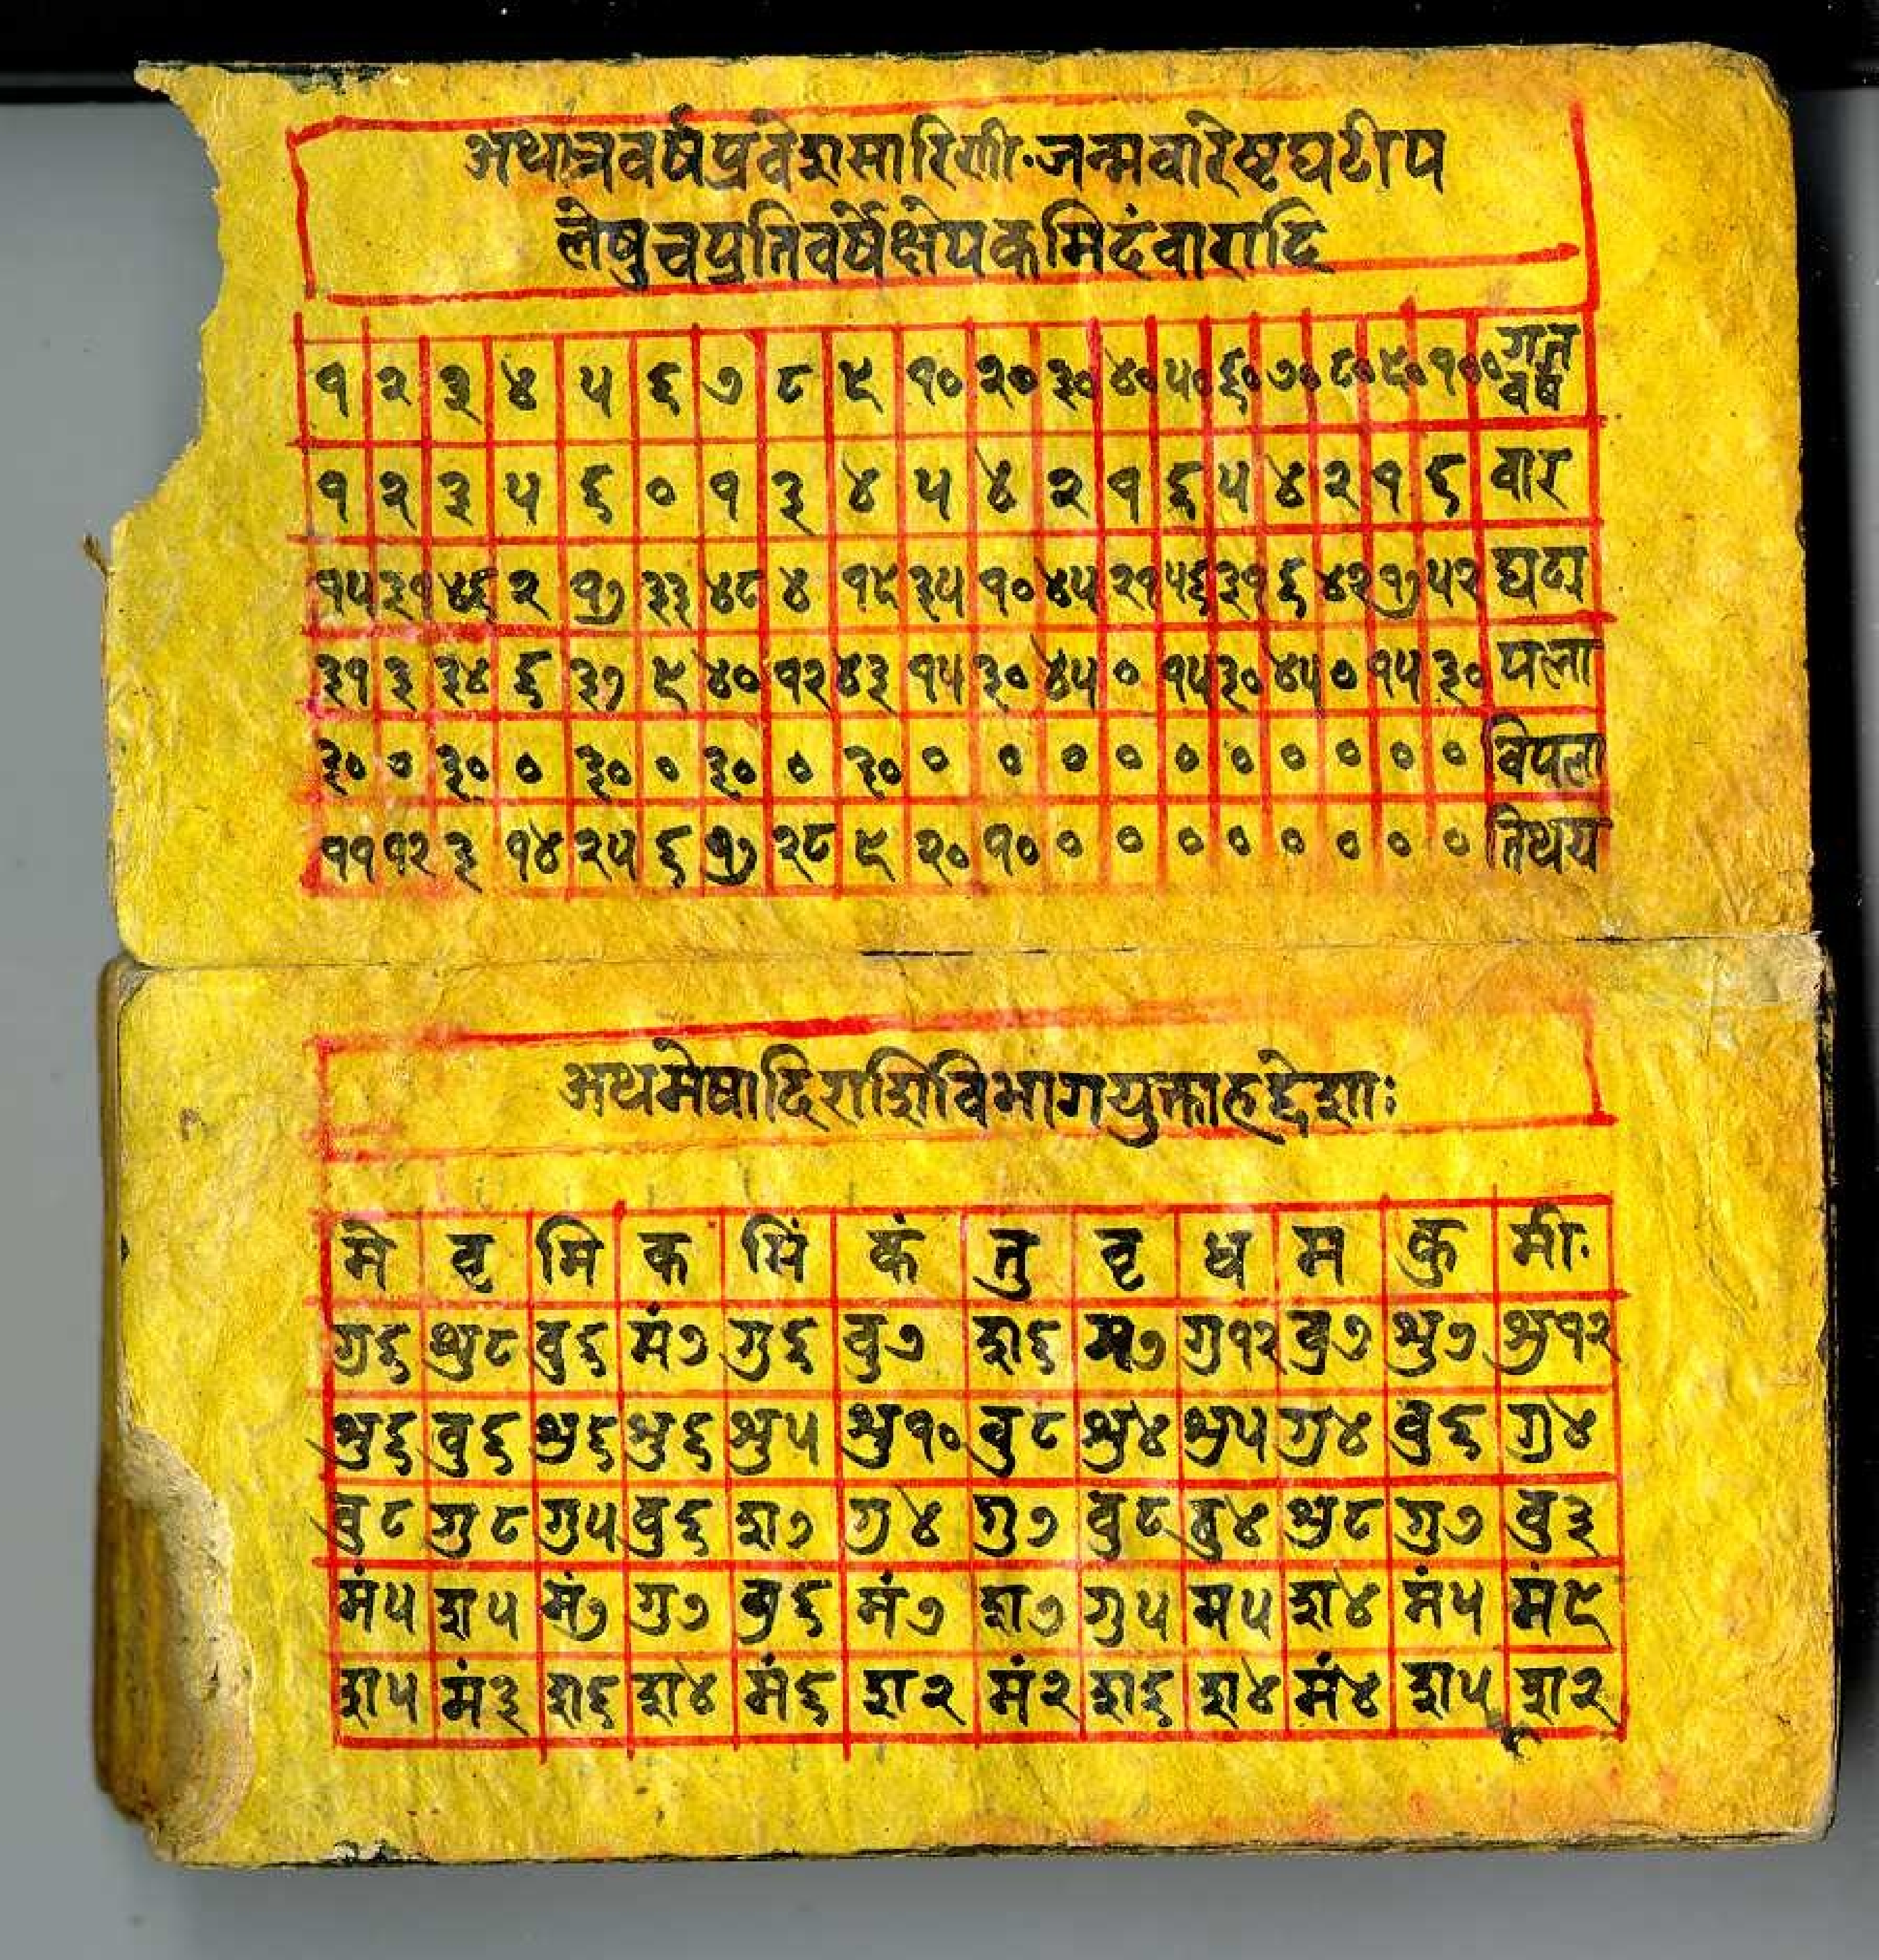 अथात्रवर्षप्रवेशसारिणी·जन्मवारेष्टघटीप
लेषुचप्रतिवर्षेक्षेपकमिदंवारादि
१ २ ३ ४ ५ ६ ७ ८ ९ १० २० ३० ४० ५० ६० ७० ८० ९० १०० गत वर्ष
१ २ ३ ५ ६ ० १ ३ ४ ५ ४ २ १ ६ ५ ४ २ १ ६ वार
१५ ३१ ४६ २ १७ ३३ ४८ ४ १९ ३५ १० ४५ २१ ५६ ३१ ६ ४२ १७ ५२ घट्य
३१ ३ ३४ ६ ३७ ९ ४० १२ ४३ १५ ३० ४५ ० १५ ३० ४५ ० १५ ३० पला
३० ० ३० ० ३० ० ३० ० ३० ० ० ० ० ० ० ० ० ० ० विपला
११ १२ ३ १४ २५ ६ १७ २८ ९ २० १० ० ० ० ० ० ० ० ० तिथय
अथमेषादिराशिविभागयुक्ताहद्देशाः
मे वृ मि क सिं कं तु वृ ध म कु मीः
गु६ शु८ बु६ मं७ गु६ बु७ श६ म७ गु१२ बु७ शु७ शु१२
शु६ बु६ शु६ शु६ शु५ शु१० बु८ शु४ शु५ गु४ बु६ गु४
बु८ गु८ गु५ बु६ श७ गु४ गु७ बु८ बु४ शु८ गु७ बु३
मं५ श५ मं७ गु७ बु६ मं७ श७ गु५ म५ श४ मं५ मं९
श५ मं३ श६ श४ मं६ श२ मं२ श६ श४ मं४ श५ श२